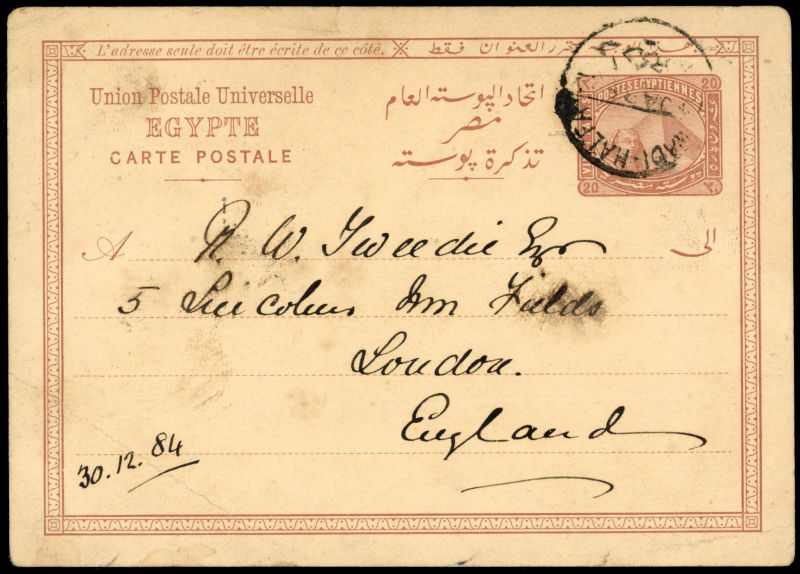 L'adresse seule doit être écrite de ce côté.
العنوان فقط
Union Postale Universelle
EGYPTE
CARTE POSTALE
اتحاد البوسته العام
مصر
تذكرة بوسته
20 POSTES EGYPTIENNES 20
20 ٢٠
WADI-HALFA
A
الى
R. W. Tweedie Esqr
5 Lincolns Inn Fields
London.
England
30.12.84